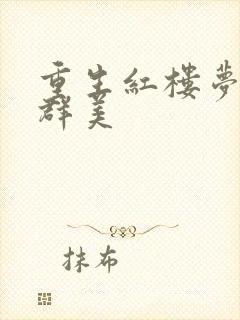 重生紅樓夢
群美
抹布